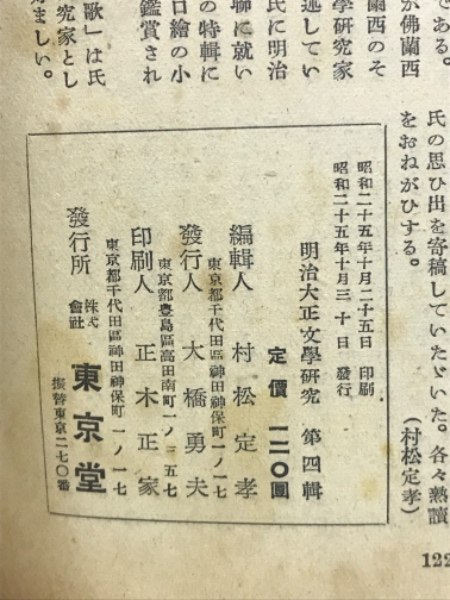 氏の思ひ出を寄稿していたゞいた。各々熟讀
をおねがひする。
（村松定孝）
である。
が佛蘭西
蘭西のそ
學研究家
逃してい
氏に明治
聯に就い
の特輯に
口繪の小
鑑賞され
歌」は氏
究家とし
ましい。
昭和二十五年十月二十五日 印刷
昭和二十五年十月三十日 發行
明治大正文學研究 第四輯
定價 一二〇圓
編輯人 村松定孝
東京都千代田區神田神保町一ノ一七
發行人 大橋勇夫
東京都豊島區高田南町一ノ三五七
印刷人 正木正家
東京都千代田區神田神保町一ノ一七
發行所 株式會社 東京堂
振替東京二七〇番
122